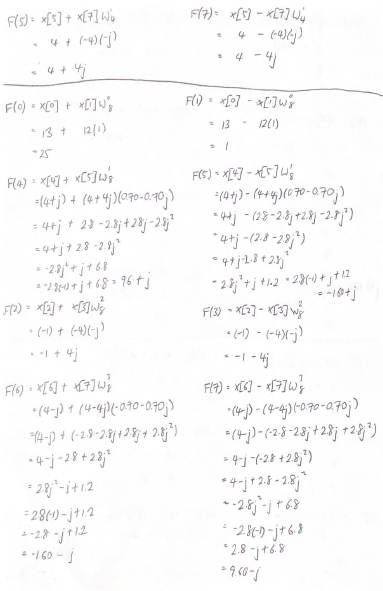 F(5) = x[5] + x[7]W₄¹
= 4 + (-4)(-j)
= 4 + 4j
F(7) = x[5] - x[7]W₄¹
= 4 - (-4)(-j)
= 4 - 4j
F(0) = x[0] + x[1]W₈⁰
= 13 + 12(1)
= 25
F(1) = x[0] - x[1]W₈⁰
= 13 - 12(1)
= 1
F(4) = x[4] + x[5]W₈¹
= (4+j) + (4+4j)(0.70-0.70j)
= 4+j + 2.8 - 2.8j + 2.8j - 2.8j²
= 4+j + 2.8 - 2.8j²
= -2.8j² + j + 6.8
= -2.8(-1) + j + 6.8 = 9.6 + j
F(5) = x[4] - x[5]W₈¹
= (4+j) - (4+4j)(0.70-0.70j)
= 4+j - (2.8 - 2.8j + 2.8j - 2.8j²)
= 4+j - (2.8 - 2.8j²)
= 4+j - 2.8 + 2.8j²
= 2.8j² + j + 1.2 = 2.8(-1) + j + 1.2
= -1.60+j
F(2) = x[2] + x[3]W₈²
= (-1) + (-4)(-j)
= -1 + 4j
F(3) = x[2] - x[3]W₈²
= (-1) - (-4)(-j)
= -1 - 4j
F(6) = x[6] + x[7]W₈³
= (4-j) + (4-4j)(-0.70-0.70j)
= (4-j) + (-2.8 - 2.8j + 2.8j + 2.8j²)
= 4-j - 2.8 + 2.8j²
= 2.8j² - j + 1.2
= 2.8(-1) - j + 1.2
= -2.8 - j + 1.2
= -1.60 - j
F(7) = x[6] - x[7]W₈³
= (4-j) - (4-4j)(-0.70-0.70j)
= (4-j) - (-2.8 - 2.8j + 2.8j + 2.8j²)
= 4-j - (-2.8 + 2.8j²)
= 4-j + 2.8 - 2.8j²
= -2.8j² - j + 6.8
= -2.8(-1) - j + 6.8
= 2.8 - j + 6.8
= 9.60-j